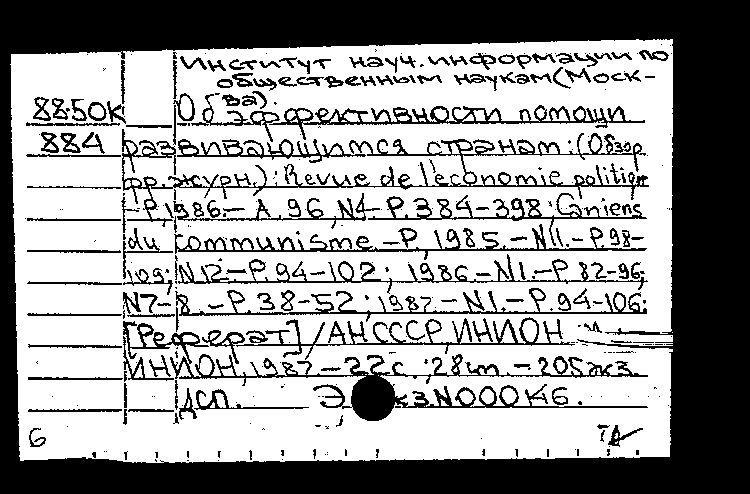 Институт науч. информации по
общественным наукам (Моск-
ва).
8850к Об эффективности помощи
884 развивающимся странам: (Обзор
фр. журн.): Revue de l'economie politique
-P, 1986.- A. 96, N4- P. 384-398; Caniens
du communisme.-P, 1985.-N11.-P.98-
109; N12-P. 94-102; 1986-N1.-P. 82-96;
N7-8.-P.38-52; 1987.-N1.-P.94-106:
[Реферат] / АН СССР, ИНИОН
ИНИОН, 1987 -22с.; 28см. - 205экз.
ДСП. Э кз. N000К6.
6